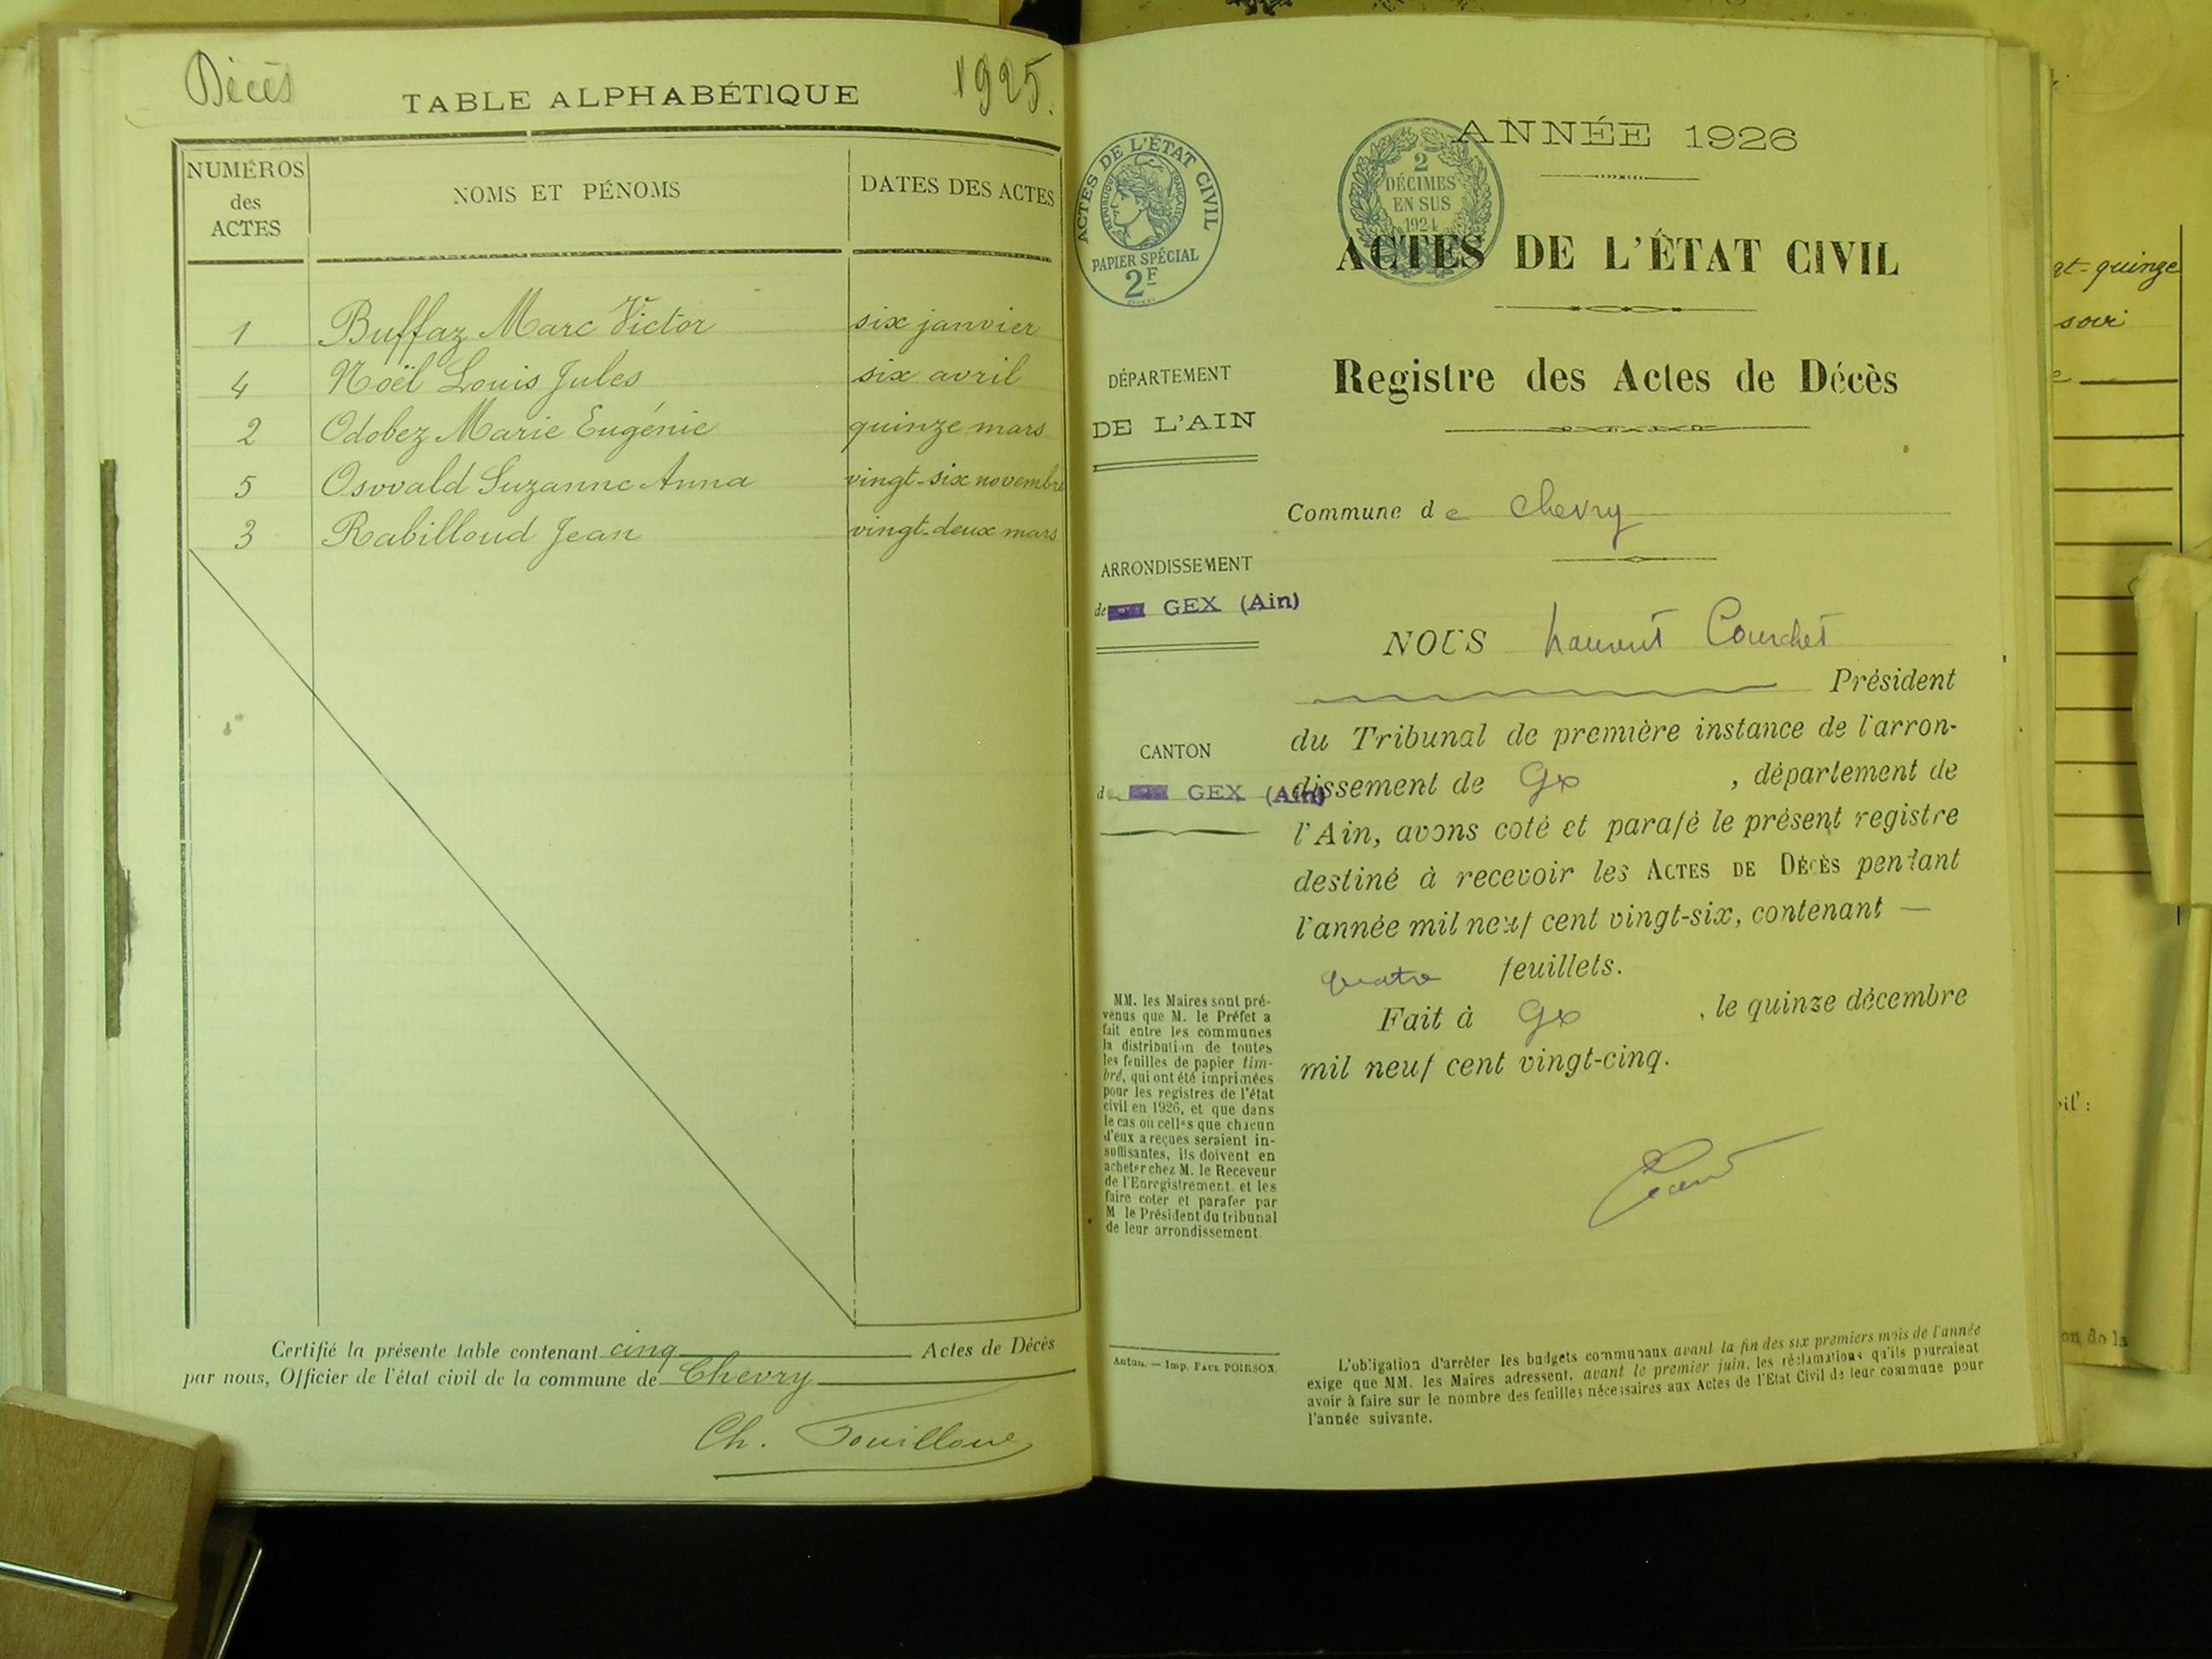 Décès
TABLE ALPHABÉTIQUE
1925.
NUMÉROS
des
ACTES
NOMS ET PÉNOMS
DATES DES ACTES
1 Buffaz Marc Victor six janvier
4 Noël Louis Jules six avril
2 Odobez Marie Eugénie quinze mars
5 Osvald Suzanne Anna vingt-six novembre
3 Rabilloud Jean vingt-deux mars
Certifié la présente table contenant cinq Actes de Décès
par nous, Officier de l'état civil de la commune de Chevry
Ch.
ACTES DE L'ÉTAT CIVIL
RÉPUBLIQUE FRANÇAISE
PAPIER SPÉCIAL
2F
DÉPARTEMENT
DE L'AIN
ARRONDISSEMENT
de GEX (Ain)
CANTON
d GEX (Ain)
MM. les Maires sont pré-
venus que M. le Préfet a
fait entre les communes
la distribution de toutes
les feuilles de papier tim-
bré, qui ont été imprimées
pour les registres de l'état
civil en 1926, et que dans
le cas où celles que chacun
d'eux a reçues seraient in-
suffisantes, ils doivent en
acheter chez M. le Receveur
de l'Enregistrement, et les
faire coter et parafer par
M le Président du tribunal
de leur arrondissement.
Autun. — Imp. PAUL POIRSON.
2
DÉCIMES
EN SUS
1924
ANNÉE 1926
ACTES DE L'ÉTAT CIVIL
Registre des Actes de Décès
Commune de Chevry
NOUS Laurent Courchet
Président
du Tribunal de première instance de l'arron-
dissement de Gex, département de
l'Ain, avons coté et parafé le présent registre
destiné à recevoir les ACTES DE DÉCÈS pendant
l'année mil neuf cent vingt-six, contenant —
quatre feuillets.
Fait à Gex, le quinze décembre
mil neuf cent vingt-cinq.
L'obligation d'arrêter les budgets communaux avant la fin des six premiers mois de l'année
exige que MM. les Maires adressent, avant le premier juin, les réclamations qu'ils pourraient
avoir à faire sur le nombre des feuilles nécessaires aux Actes de l'Etat Civil de leur commune pour
l'année suivante.
gt-quinze
soir
on de la